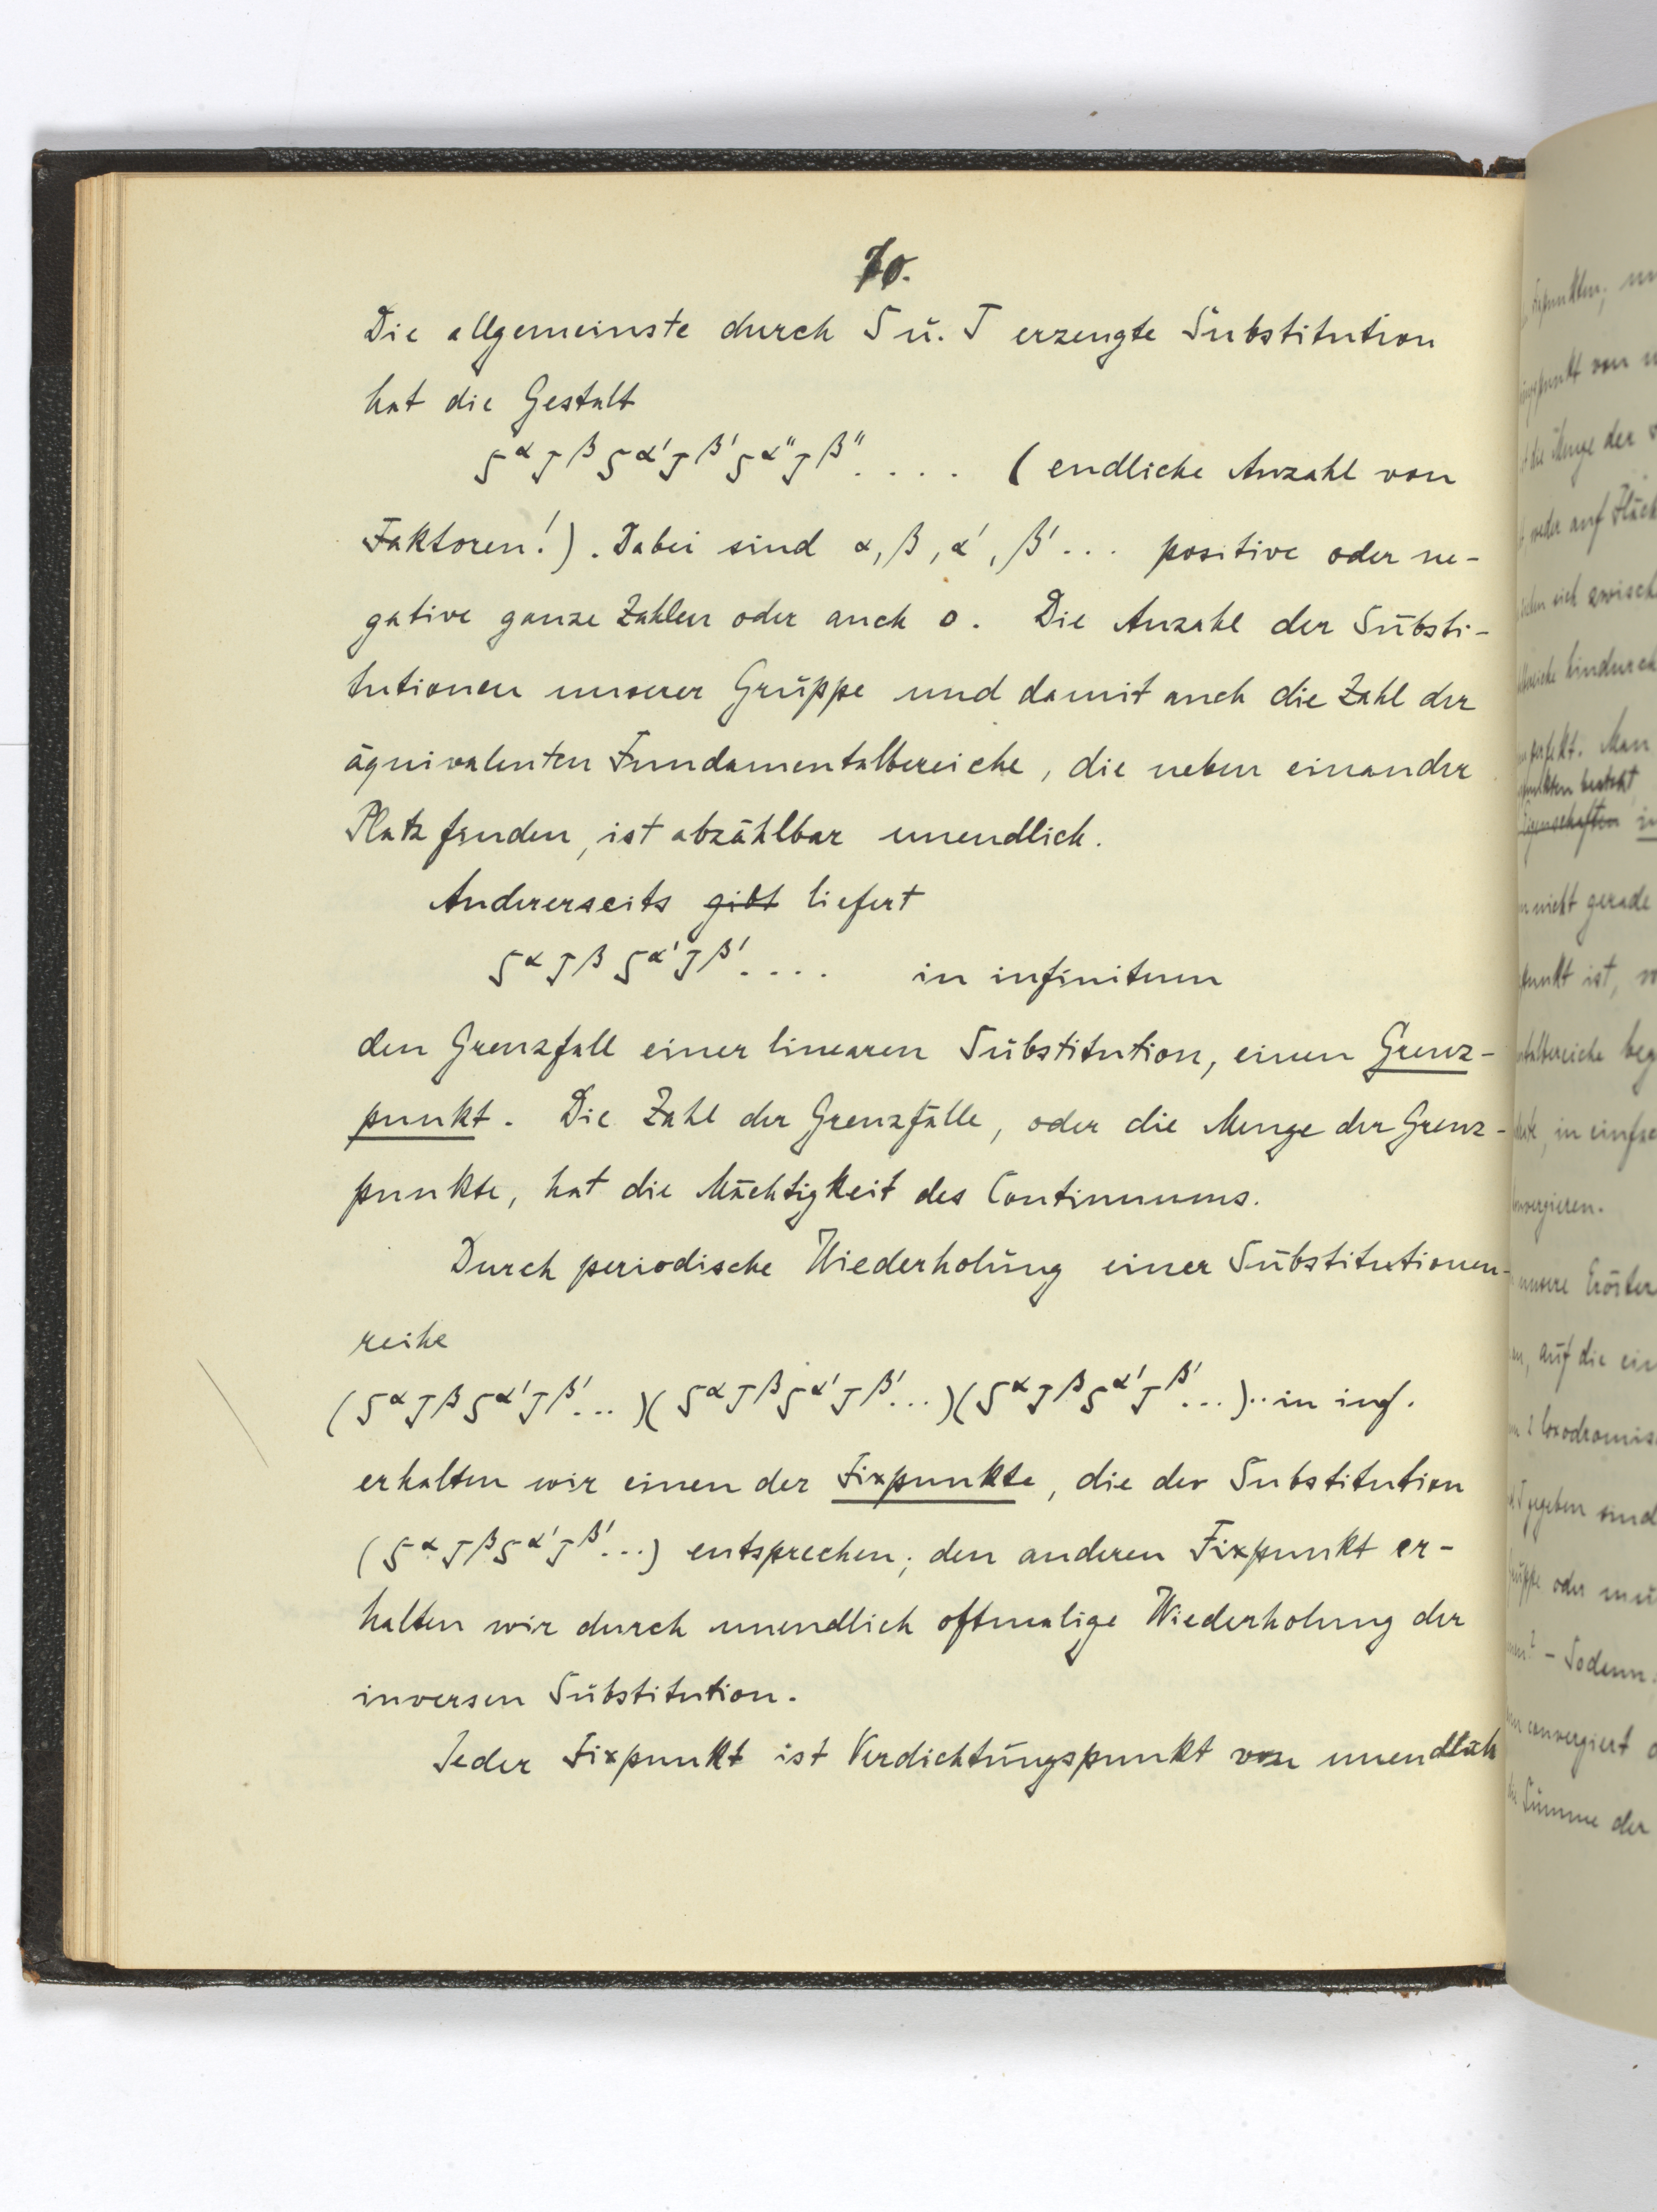 70.
Die allgemeinste durch S u. T erzeugte Substitution
hat die Gestalt
S^α T^β S^α' T^β' S^α'' T^β'' . . . . (endliche Anzahl von
Faktoren!). Dabei sind α, β, α', β' ... positive oder ne-
gative ganze Zahlen oder auch 0. Die Anzahl der Substi-
tutionen unserer Gruppe und damit auch die Zahl der
äquivalenten Fundamentalbereiche, die neben einander
Platz finden, ist abzählbar unendlich.
Andererseits gibt liefert
S^α T^β S^α' T^β' . . . . in infinitum
den Grenzfall einer linearen Substitution, einen Grenz-
punkt. Die Zahl der Grenzfälle, oder die Menge der Grenz-
punkte, hat die Mächtigkeit des Continuums.
Durch periodische Wiederholung einer Substitutionen-
reihe
(S^α T^β S^α' T^β' ...)(S^α T^β S^α' T^β' ...)(S^α T^β S^α' T^β' ...)·· in inf.
erhalten wir einen der Fixpunkte, die der Substitution
(S^α T^β S^α' T^β' ...) entsprechen; den anderen Fixpunkt er-
halten wir durch unendlich oftmalige Wiederholung der
inversen Substitution.
Jeder Fixpunkt ist Verdichtungspunkt von unendlich
weder auf
hindurch
Man
nicht gerade
ist,
in
unsere
auf die
gegeben sind
oder
Sodann
convergiert
Summe der